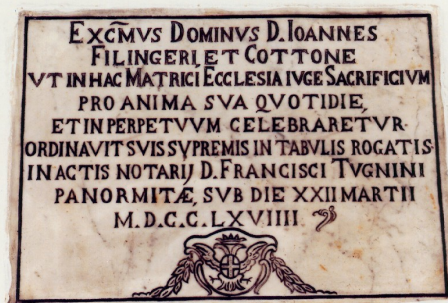 EXCM̃VS DOMINVS D. IOANNES
FILINGERI, ET COTTONE
VT IN HAC MATRICI ECCLESIA IVGE SACRIFICIVM
PRO ANIMA SVA QVOTIDIE,
ET IN PERPETVVM CELEBRARETVR·
ORDINAVIT SVIS SVPREMIS IN TABVLIS ROGATIS·
IN ACTIS NOTARIJ D. FRANCISCI TVGNINI
PANORMITÆ, SVB DIE XXII MARTII
M.D.C.C.LXVIIII